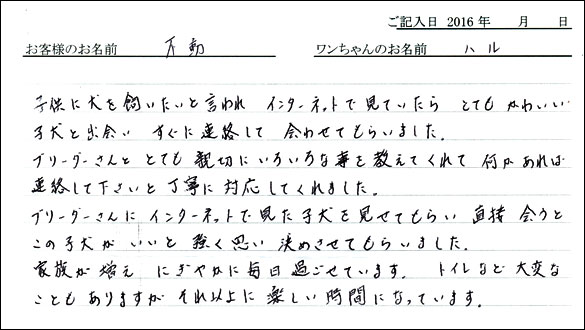 ご記入日 2016 年 月 日
お客様のお名前 不動 ワンちゃんのお名前 ハル
子供に犬を飼いたいと言われ インターネットで見ていたら とてもかわいい
子犬と出会い すぐに連絡して 会わせてもらいました。
ブリーダーさんと とても 親切にいろいろな事を教えてくれて 何かあれば
連絡して下さいと丁寧に 対応してくれました。
ブリーダーさんに インターネットで見た子犬を見せてもらい 直接 会うと
この子犬が いいと 強く思い 決めさせてもらいました。
家族が増え にぎやかに毎日過ごせています。 トイレなど大変な
こともありますが それ以上に 楽しい時間になっています。